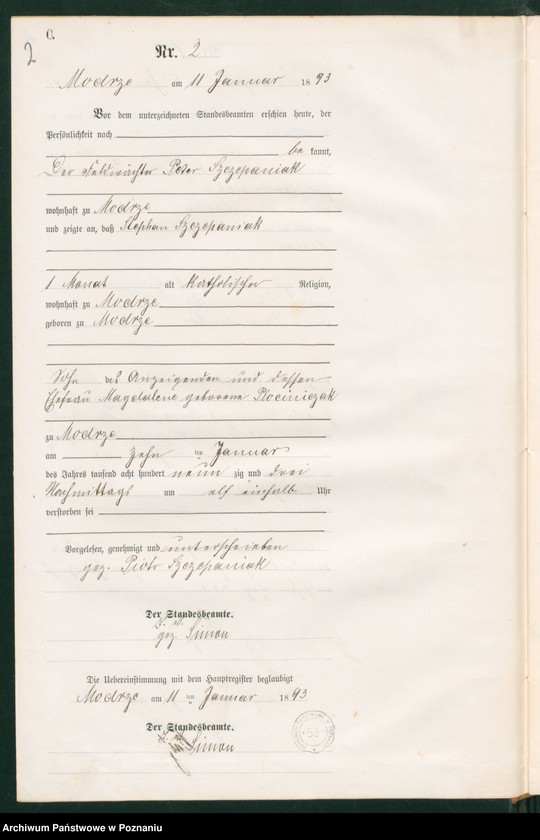 C.
2
Nr. 2
Modrze am 11 Januar 1893
Vor dem unterzeichneten Standesbeamten erschien heute, der
Persönlichkeit nach
be kannt,
Der Feldwächter Peter Szczepaniak
wohnhaft zu Modrze
und zeigte an, daß Stephan Szczepaniak
1 Monat alt katholischer Religion,
wohnhaft zu Modrze
geboren zu Modrze
Sohn des Anzeigenden und dessen
Ehefrau Magdalene geborene Plociniczak
zu Modrze
am zehn ten Januar
des Jahres tausend acht hundert neun zig und drei
Nachmittags um elf einhalb Uhr
verstorben sei
Vorgelesen, genehmigt und unterschrieben
gez. Piotr Szczepaniak
Der Standesbeamte.
gez. Simon
Die Uebereinstimmung mit dem Hauptregister beglaubigt
Modrze am 11 ten Januar 1893
Der Standesbeamte.
Simon
53
Archiwum Państwowe w Poznaniu